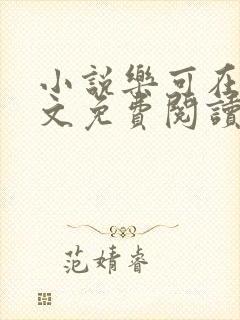 小説樂可在
文免費閱讀
范婧睿